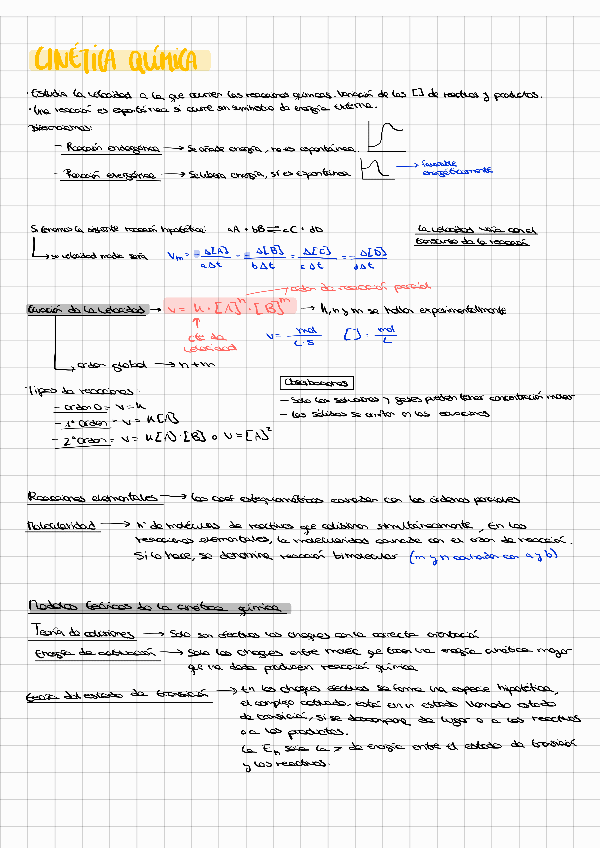 CINÉTICA QUÍMICA
· Estudia la velocidad a la que ocurren las reacciones químicas. Variación de las [] de reactivos y productos.
· Una reacción es espontánea si ocurre sin suministro de energía externa.
Diferenciamos:
- Reacción endergónica → Se añade energía, no es espontánea.
- Reacción exergónica → Se libera energía, sí es espontánea
→ favorable energéticamente
Si tenemos la siguiente reacción hipotética: aA + bB ⇌ cC + dD
La velocidad varía con el
transcurso de la reacción
→ su velocidad media será Vm = - Δ[A] / aΔt = - Δ[B] / bΔt = Δ[C] / cΔt = Δ[D] / dΔt
→ orden de reacción parcial
Ecuación de la velocidad → v = K · [A]ⁿ · [B]ᵐ → K, n y m se hallan experimentalmente
↑ cte de velocidad
v = mol / L·s [] · mol / L
→ orden global → n + m
Tipos de reacciones:
Observaciones
- Orden 0 = v = K
- Solo las soluciones y gases pueden tener concentración molar
- 1º Orden = v = K[A]
- Los sólidos se omiten en las ecuaciones
- 2º Orden = v = K[A]·[B] o v = [A]²
Reacciones elementales → Los coef estequiométricos coinciden con los órdenes parciales
Molecularidad → Nº de moléculas de reactivos que colisionan simultáneamente, En las
reacciones elementales, la molecularidad coincide con el orden de reacción.
Si lo hace, se denomina reacción bimolecular (m y n coinciden con a y b)
Modelos teóricos de la cinética química
Teoría de colisiones → Solo son efectivos los choques con la correcta orientación
Energía de activación → Solo los choques entre moléc que tienen una energía cinética mayor
que una dada producen reacción química
Teoría del estado de transición → En los choques efectivos se forma una especie hipotética,
el complejo activado. está en un estado llamado estado
de transición, si se descompone da lugar o a los reactivos
o a los productos.
La Eₐ será la ≠ de energía entre el estado de transición
y los reactivos.